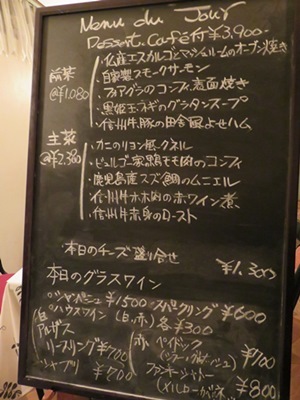 Menu du Jour
Dessert, café付 ¥3,900
前菜
@¥1,080
・仏産エスカルゴとマッシュルームのオーブン焼き
・自家製スモークサーモン
・フォアグラのコンフィ 表面焼き
・黒姫玉ネギのグラタンスープ
・信州牛豚の田舎風よせハム
主菜
@¥2,380
・カニのリヨン風クネル
・ビュルゴー家鴨モモ肉のコンフィ
・鹿児島産スズ鯛のムニエル
・信州牛ホホ肉の赤ワイン煮
・信州牛赤身のロースト
・本日のチーズ盛り合せ
¥1,300
本日のグラスワイン
シャンパーニュ ¥1500 スパークリング ¥600
ハウスワイン (白,赤) 各¥300
(白) アルザス
リースリング ¥700
シャブリ ¥700
(赤) ペイドック
¥700
¥800